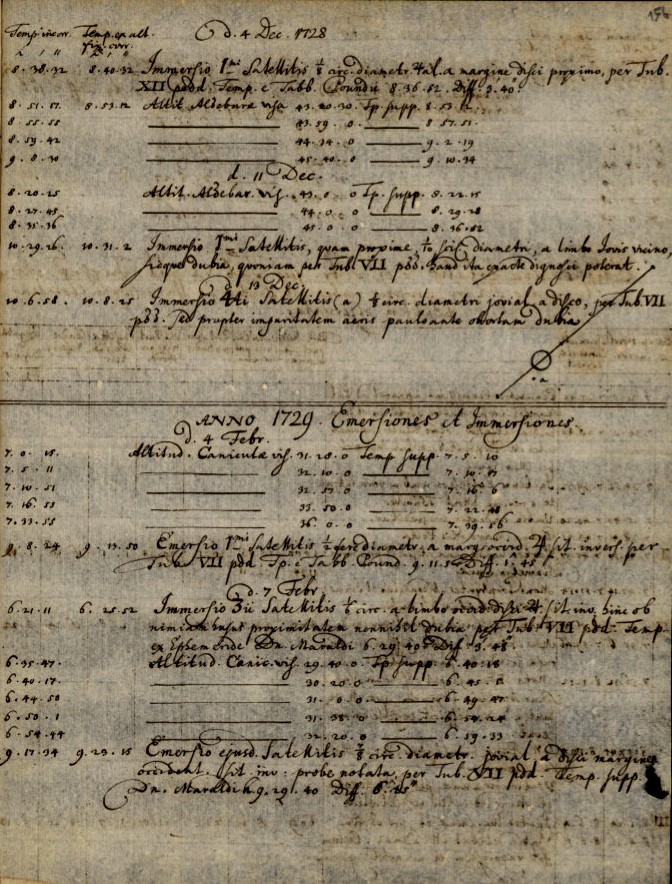 Temp. incorr. Temp. ex alt. d. 4 Dec. 1728
fix. corr.
8. 38. 32 8. 40. 32 Immersio 1mi Satellitis circ. diametr. ♃al. a margine disci proximo, per Tub.
XII pdd. Temp. e Tabb. Poundii 8. 36. 52. Diff. 3. 40.
8. 51. 17. 8. 53. 12 Altit. Aldebarae visa 43. 40. 30. Tp. supp. 8. 53. 12
8. 55. 55 43. 59. 0 8. 57. 51.
8. 59. 42 44. 34. 0 9. 2. 19
9. 8. 30 45. 40. 0 9. 10. 34
d. 11 Dec.
8. 20. 25 Altit. Aldebar. vis. 43. 0. 0 Tp. supp. 8. 22. 15
8. 27. 45 44. 0. 0 8. 29. 28
8. 35. 36 45. 0. 0 8. 36. 52
10. 29. 26. 10. 31. 2 Immersio 1mi Satellitis, quam proxime, diametri, a limbo Jovis vicino,
sicque dubia, quoniam per Tub. VII pdd. haud ita exacte dignosci poterat.
d. 13 Dec.
10. 6. 58. 10. 8. 25 Immersio 4ti Satellitis (a) circ. diametri jovial. a disco, per Tub. VII
pdd. sed propter impuritatem aeris paulo ante obortam dubia
. a
ANNO 1729. Emersiones et Immersiones.
d. 4 Febr.
7. 0. 15. Altitud. Caniculae vis. 31. 28. 0 Temp. supp. 7. 5. 10
7. 5. 11 32. 10. 0 7. 10.
7. 10. 51 32. 57. 0 7. 16. 6
7. 16. 53 33. 50. 0 7. 22. 48
7. 33. 55 36. 0. 0 7. 39. 56
8. 24 9. 13. 50 Emersio 1mi Satellitis ½ fere diametr. a marg. occid. ♃ sit. invers. per
Tub. VII pdd. Tp. e Tabb. Pound. 9. 11. Diff. 1. 45
d. 7 Febr.
6. 21. 11 6. 25. 52 Immersio 3ii Satellitis circ. a limbo occid. disci ♃ sit. inv. hinc ob
nimiam hujus proximitatem nonnihil dubia per Tub. VII pdd. Temp.
ex Ephemeride Dn. Maraldi 6. 29. 40. Diff. 3. 48
6. 35. 47. Altitud. Canic. vis. 29. 40. 0 Tp. supp. 6. 40. 18
6. 40. 17. 30. 20. 0 6. 45. 5
6. 44. 50 31. 0. 0 6. 49. 47
6. 50. 1 31. 38. 0 6. 54. 24
6. 54. 44 32. 20. 0 6. 59. 33
9. 17. 34 9. 23. 15 Emersio ejusd. Satellitis circ. diametr. jovial. a disci margine
occident. sit. inv. probe notata, per Tub. VII pdd. Temp. supp.
Dn. Maraldi h. 9. 29. 40 Diff. 6. 25"